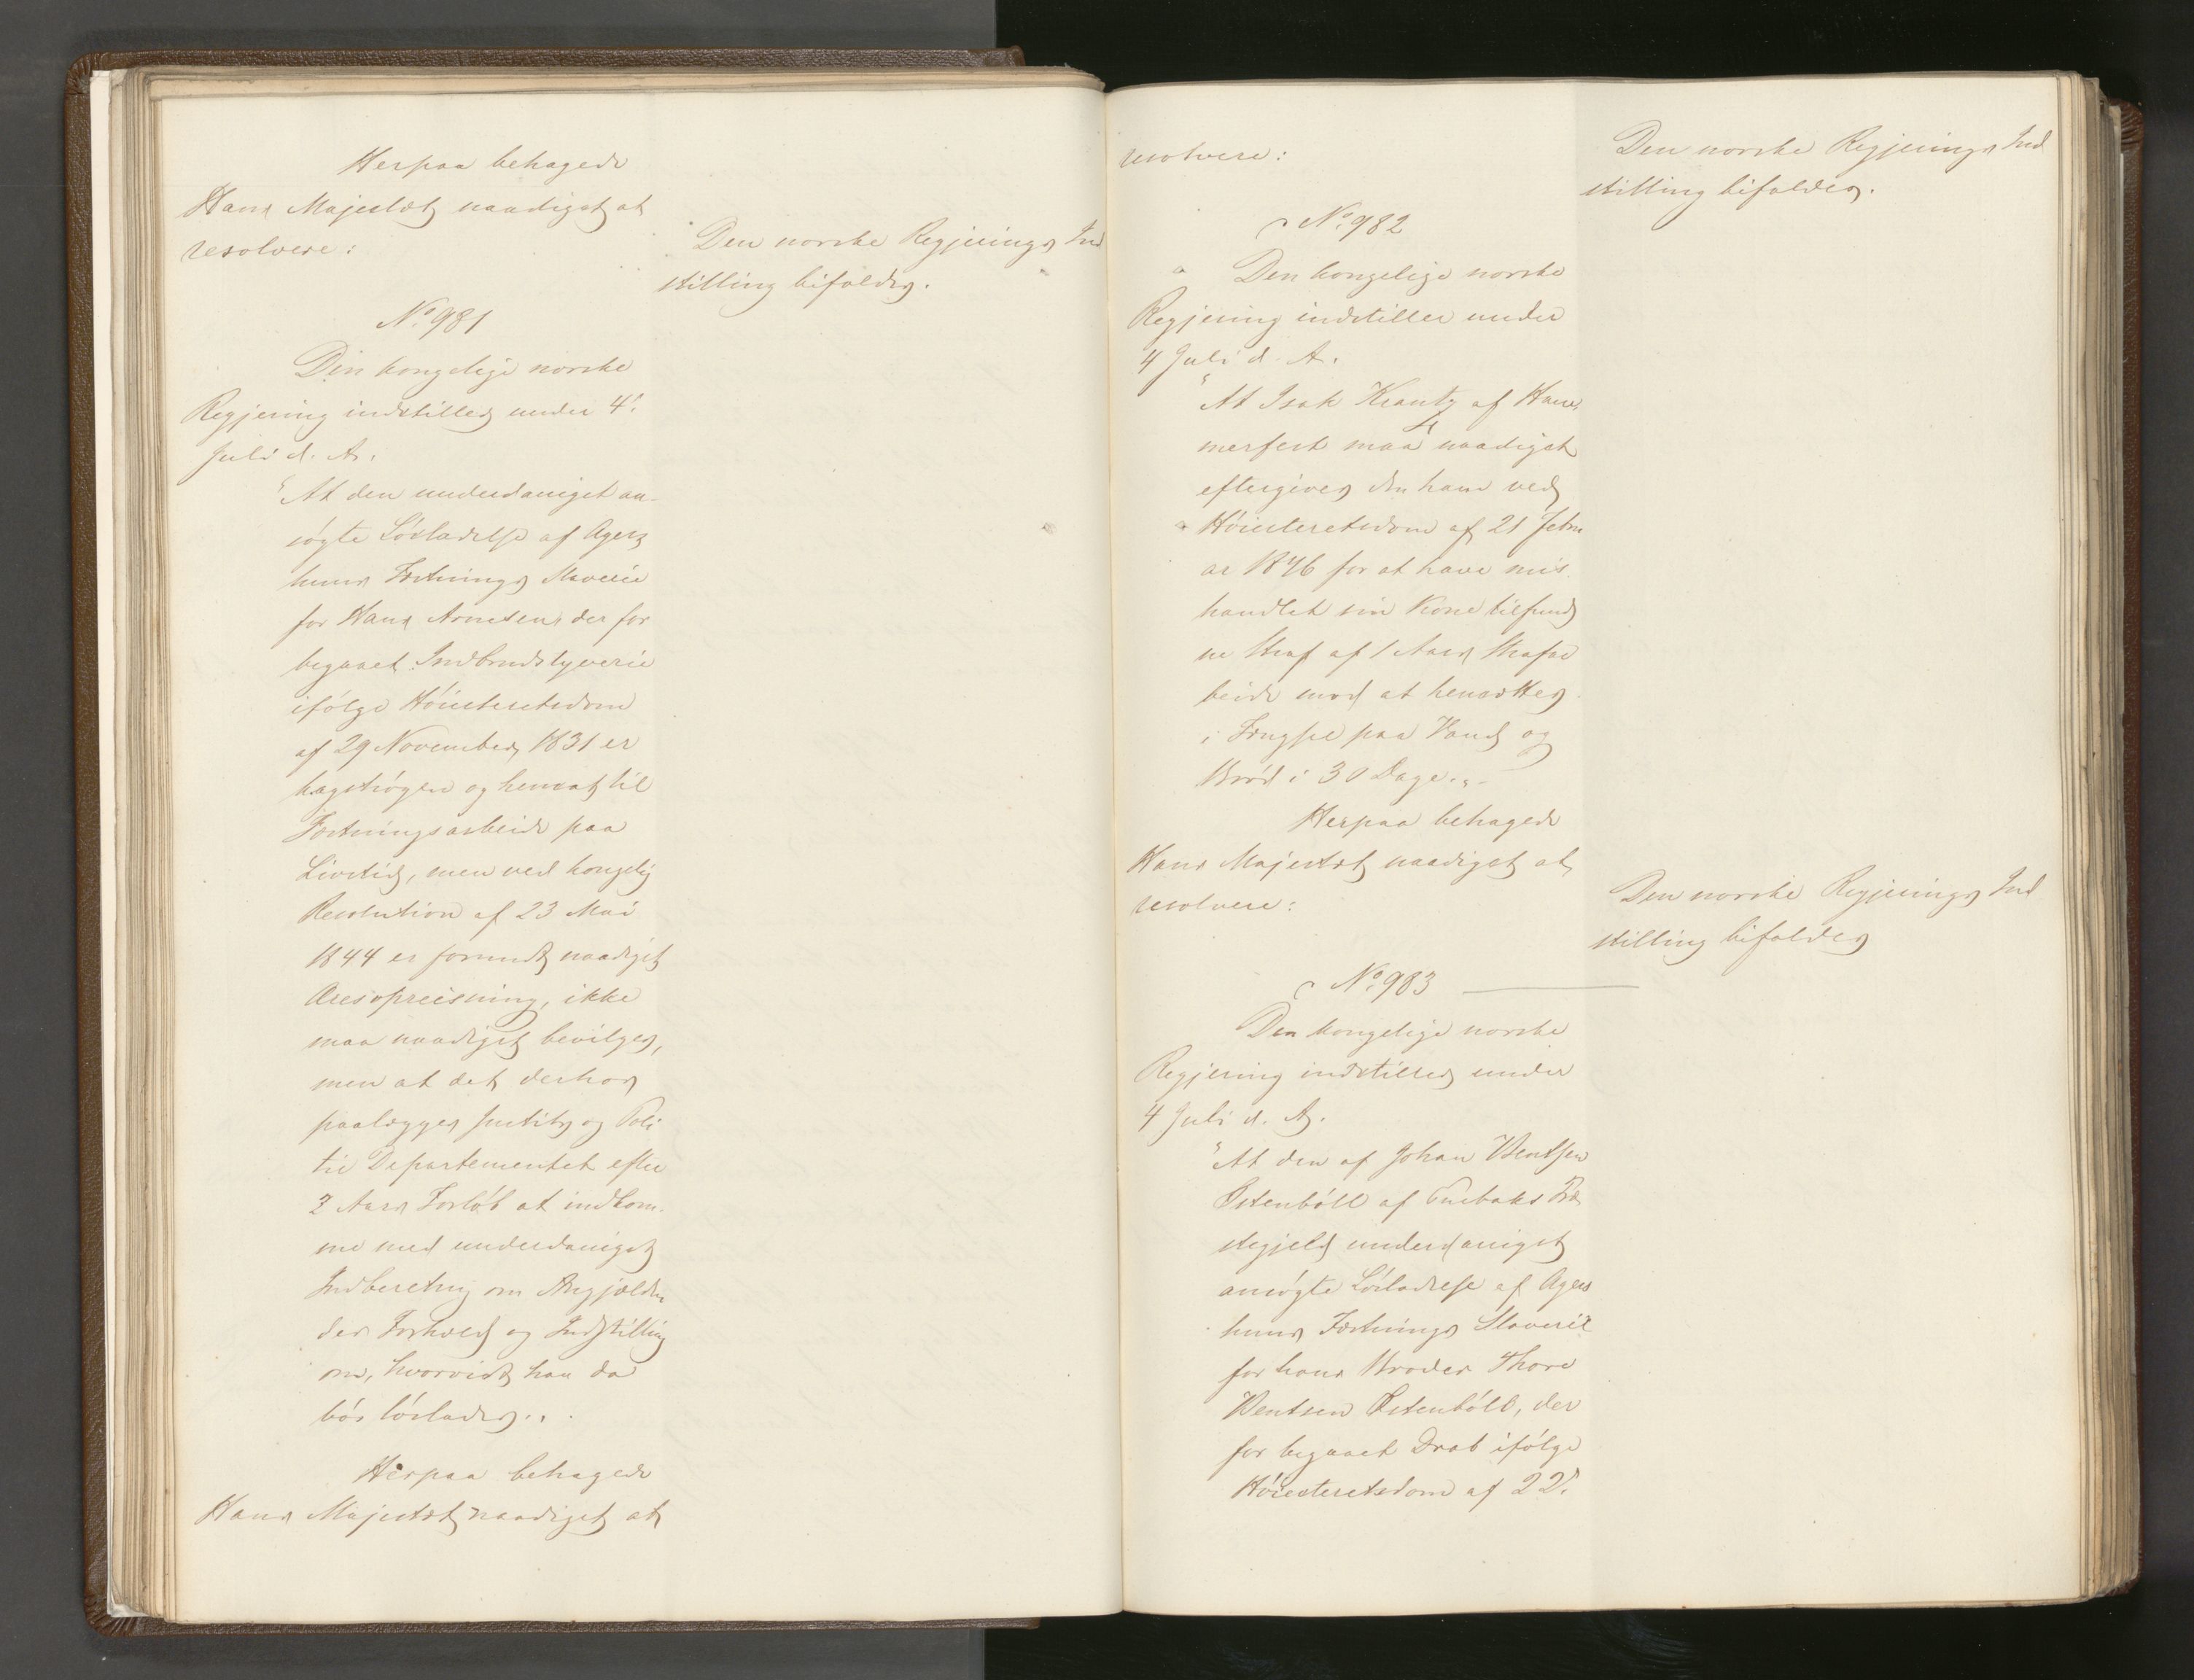 Herpaa behagede
Hans Majestæt naadigst at
resolvere:
Den norske Regjerings Ind
stilling bifaldes.
No. 981
Den kongelige norske
Regjering indstiller under 4.
Juli d. A.
"At den underdanigst an-
søgte Løsladelse af Agers
huus Fæstnings Slaverie
for Hans Arnesen, der for
begaaet Indbrudstyverie
ifølge Høiesteretsdom
af 29 November 1831 er
kagstrøgen og hensat til
Fæstningsarbeide paa
Livstid, men ved kongelig
Resolution af 23 Mai
1844 er forundt naadigst
Æresopreisning, ikke
maa naadigst bevilges,
men at det derhos
paalægges Justits og Poli
tie Departementet efter
2 Aars Forløb at indkom-
me med underdanigst
Indberetning om Angjælden
des Forhold og Indstilling
om, hvorvidt han da
bør løslades."
Herpaa behagede
Hans Majestæt naadigst at
resolvere:
Den norske Regjerings Ind
stilling bifaldes.
No. 982
Den kongelige norske
Regjering indstiller under
4 Juli d. A.
"At Isak Krantz af Ham
merfest maa naadigst
eftergives den ham ved
Høiesteretsdom af 21 Febru
ar 1846 for at have mis
handlet sin Kone tilfund
ne Straf af 1 Aars Strafar
beide mod at hensættes
i Fængsel paa Vand og
Brød i 30 Dage."
Herpaa behagede
Hans Majestæt naadigst at
resolvere:
Den norske Regjerings Ind
stilling bifaldes
No. 983
Den kongelige norske
Regjering indstiller under
4 Juli d. A.
"At den af Johan Bentsen
Østenbøll af Enebaks Præ
stegjeld underdanigst
ansøgte Løsladelse af Agers
huus Fæstnings Slaverie
for hans Broder Thore
Bentsen Østenbøll, der
for begaaet Drab ifølge
Høiesteretsdom af 22.